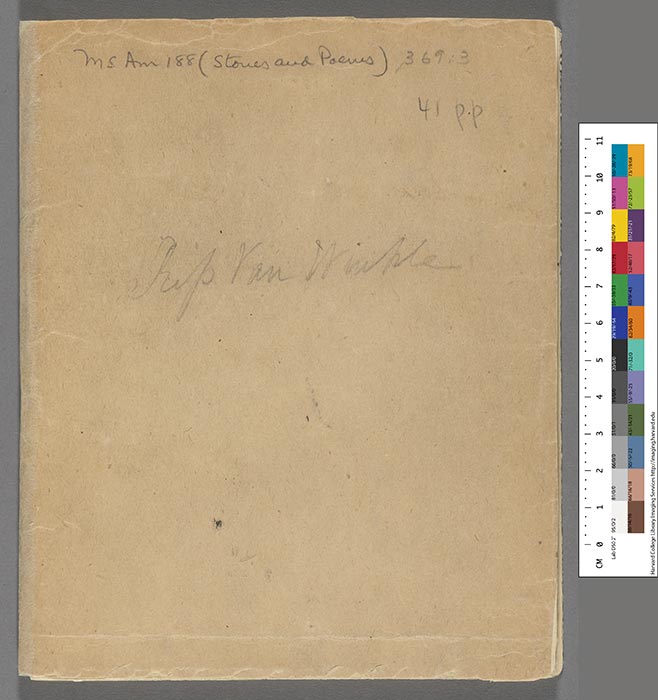 MS Am 188 (Stories and Poems) 369:3
41 pp
Rip Van Winkle
11
10
9
8
7
6
5
4
3
2
1
CM 0
Harvard College Library Imaging Services http://imaging.harvard.edu